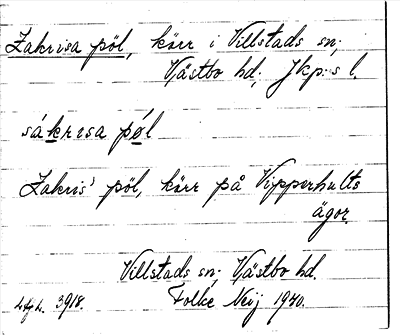 Zakrisa pöl, kärr i Villstads sn;
Västbo hd; Jkp:s l.
sákrisa pøl
Zakris' pöl, kärr på Vipperhults
ägor.
Villstads sn; Västbo hd.
3918. Folke Neij 1940.